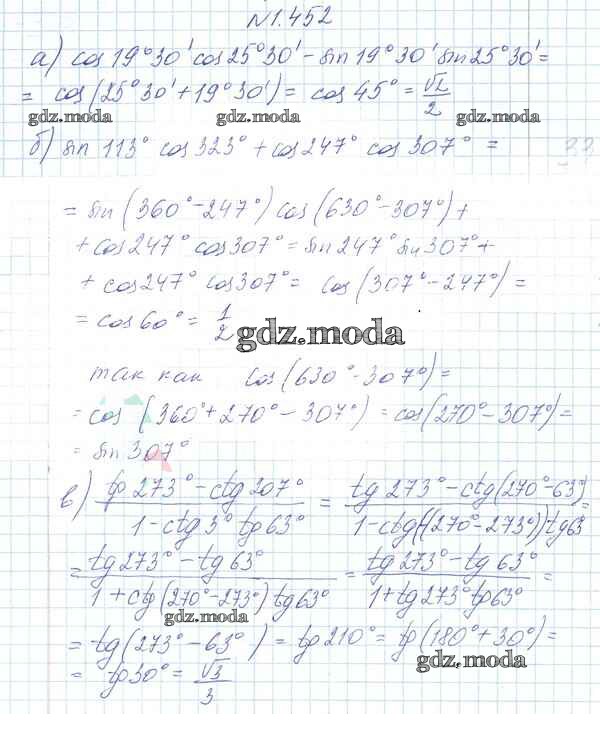 №1.452
а) cos 19°30' cos 25°30' - sin 19°30' sin 25°30' =
= cos(25°30' + 19°30') = cos 45° = √2/2
gdz.moda gdz.moda
б) sin 113° cos 323° + cos 247° cos 307° =
= sin(360° - 247°) cos(630° - 307°) +
+ cos 247° cos 307° = sin 247° sin 307° +
+ cos 247° cos 307° = cos(307° - 247°) =
= cos 60° = 1/2
gdz.moda
так как cos(630° - 307°) =
= cos(360° + 270° - 307°) = cos(270° - 307°) =
= sin 307°
в) (tg 273° - ctg 207°)/(1 - ctg 3° tg 63°) = (tg 273° - ctg(270° - 63°))/(1 - ctg(-(270° - 273°)) tg 63°) =
= (tg 273° - tg 63°)/(1 + ctg(270° - 273°) tg 63°) = (tg 273° - tg 63°)/(1 + tg 273° tg 63°) =
gdz.moda
= tg(273° - 63°) = tg 210° = tg(180° + 30°) =
gdz.moda
= tg 30° = √3/3